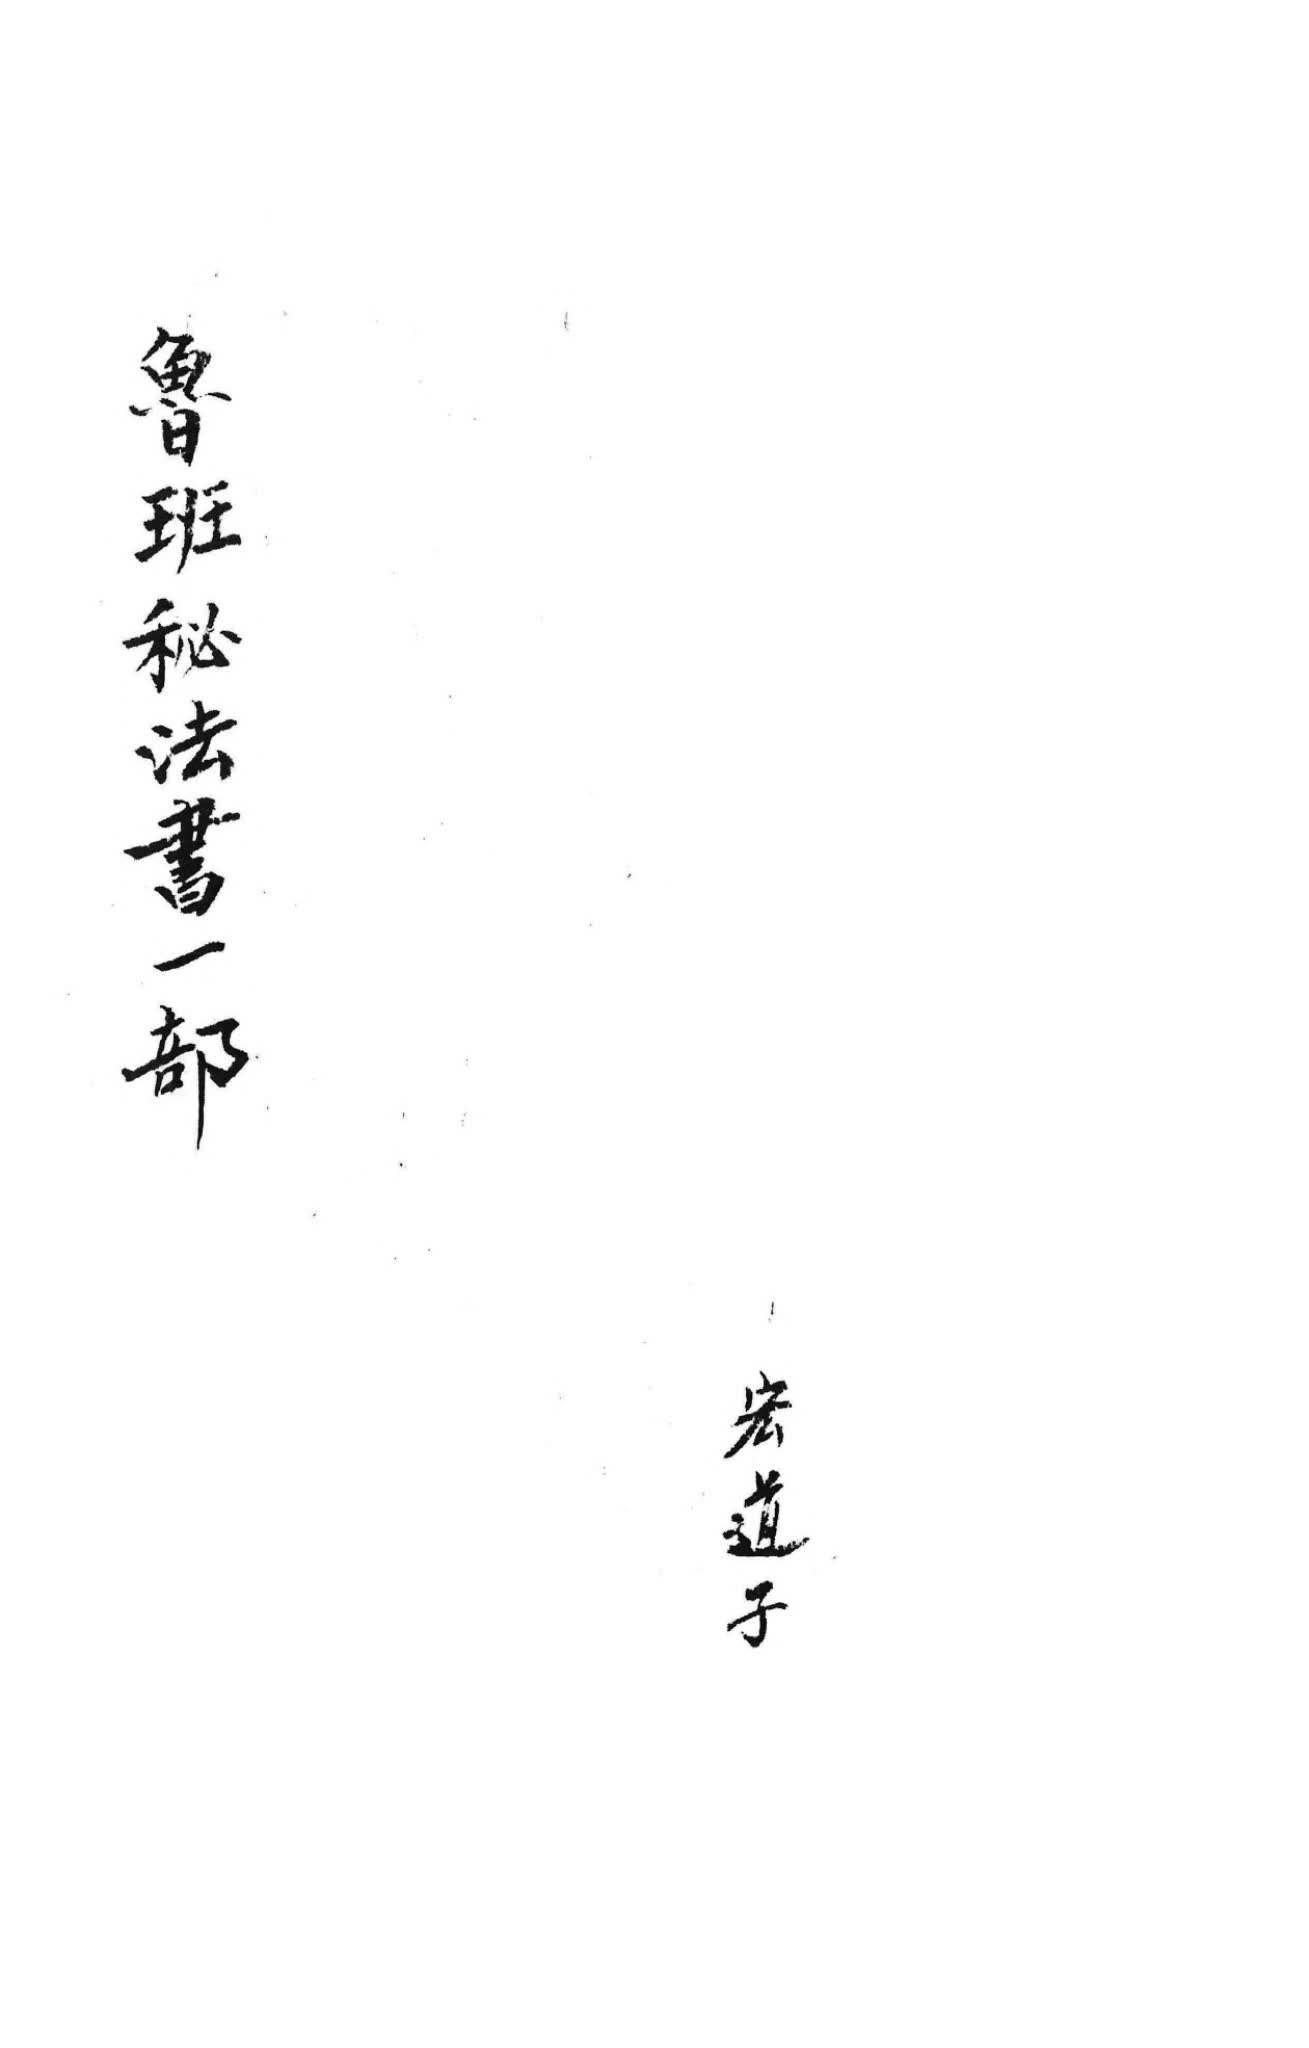 魯班秘法書一部
宏道子